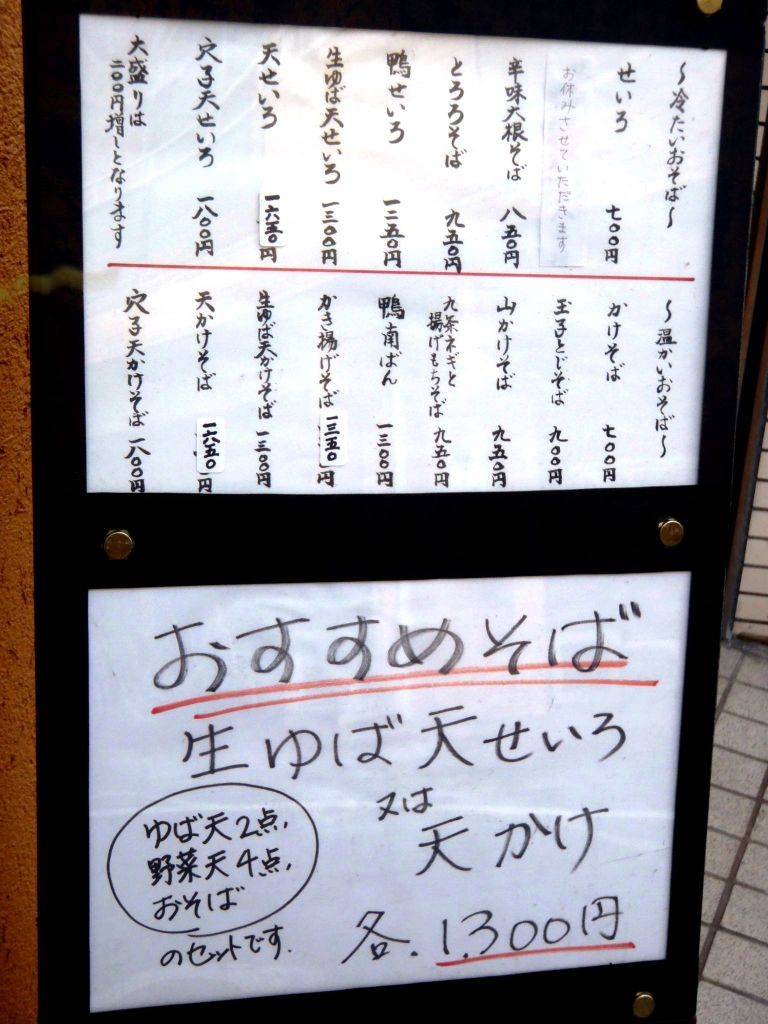 ～冷たいおそば～
せいろ 七〇〇円
お休みさせていただきます
辛味大根そば 八五〇円
とろろそば 九五〇円
鴨せいろ 一二五〇円
生ゆば天せいろ 一三〇〇円
天せいろ 一六五〇円
穴子天せいろ 一八〇〇円
大盛りは
二〇〇円増しとなります
～温かいおそば～
かけそば 七〇〇円
玉子とじそば 九〇〇円
山かけそば 九五〇円
九条ネギと
揚げもちそば 九五〇円
鴨南ばん 一三〇〇円
かき揚げそば 一三五〇円
生ゆば天かけそば 一三〇〇円
天かけそば 一六五〇円
穴子天かけそば 一八〇〇円
おすすめそば
生ゆば天せいろ
又は
天かけ
各.1,300円
ゆば天2点,
野菜天4点,
おそば
のセットです.